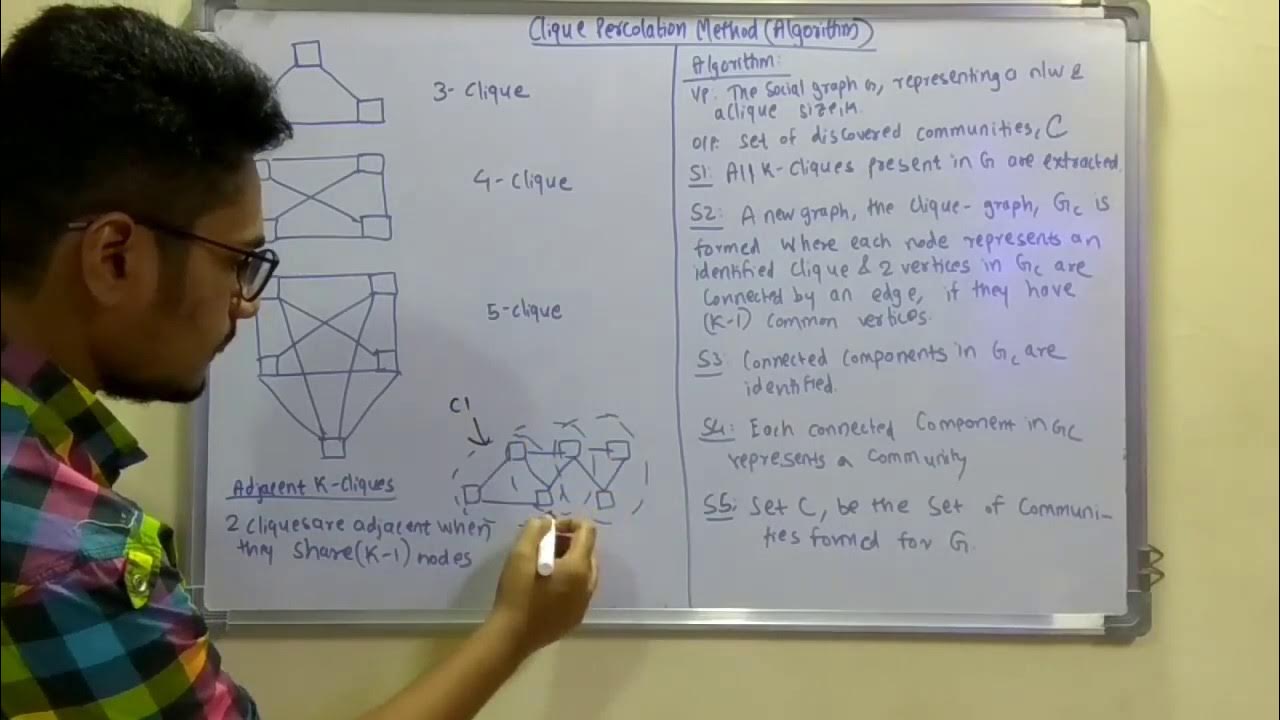 Clique Percolation Method (Algorithm)
3- Clique
4- Clique
5-clique
C1
Adjacent K-Cliques
2 cliques are adjacent when
they share (K-1) nodes
Algorithm:
I/P: The Social graph G, representing a n/w &
a clique size, K.
O/P: Set of discovered communities, C
S1: All K-Cliques present in G are extracted.
S2: A new graph, the clique-graph, Gc is
formed where each node represents an
identified clique & 2 vertices in Gc are
connected by an edge, if they have
(K-1) common vertices.
S3: Connected components in Gc are
identified.
S4: Each connected Component in GC
represents a community
S5: Set C, be the Set of Communi-
ties formed for G.